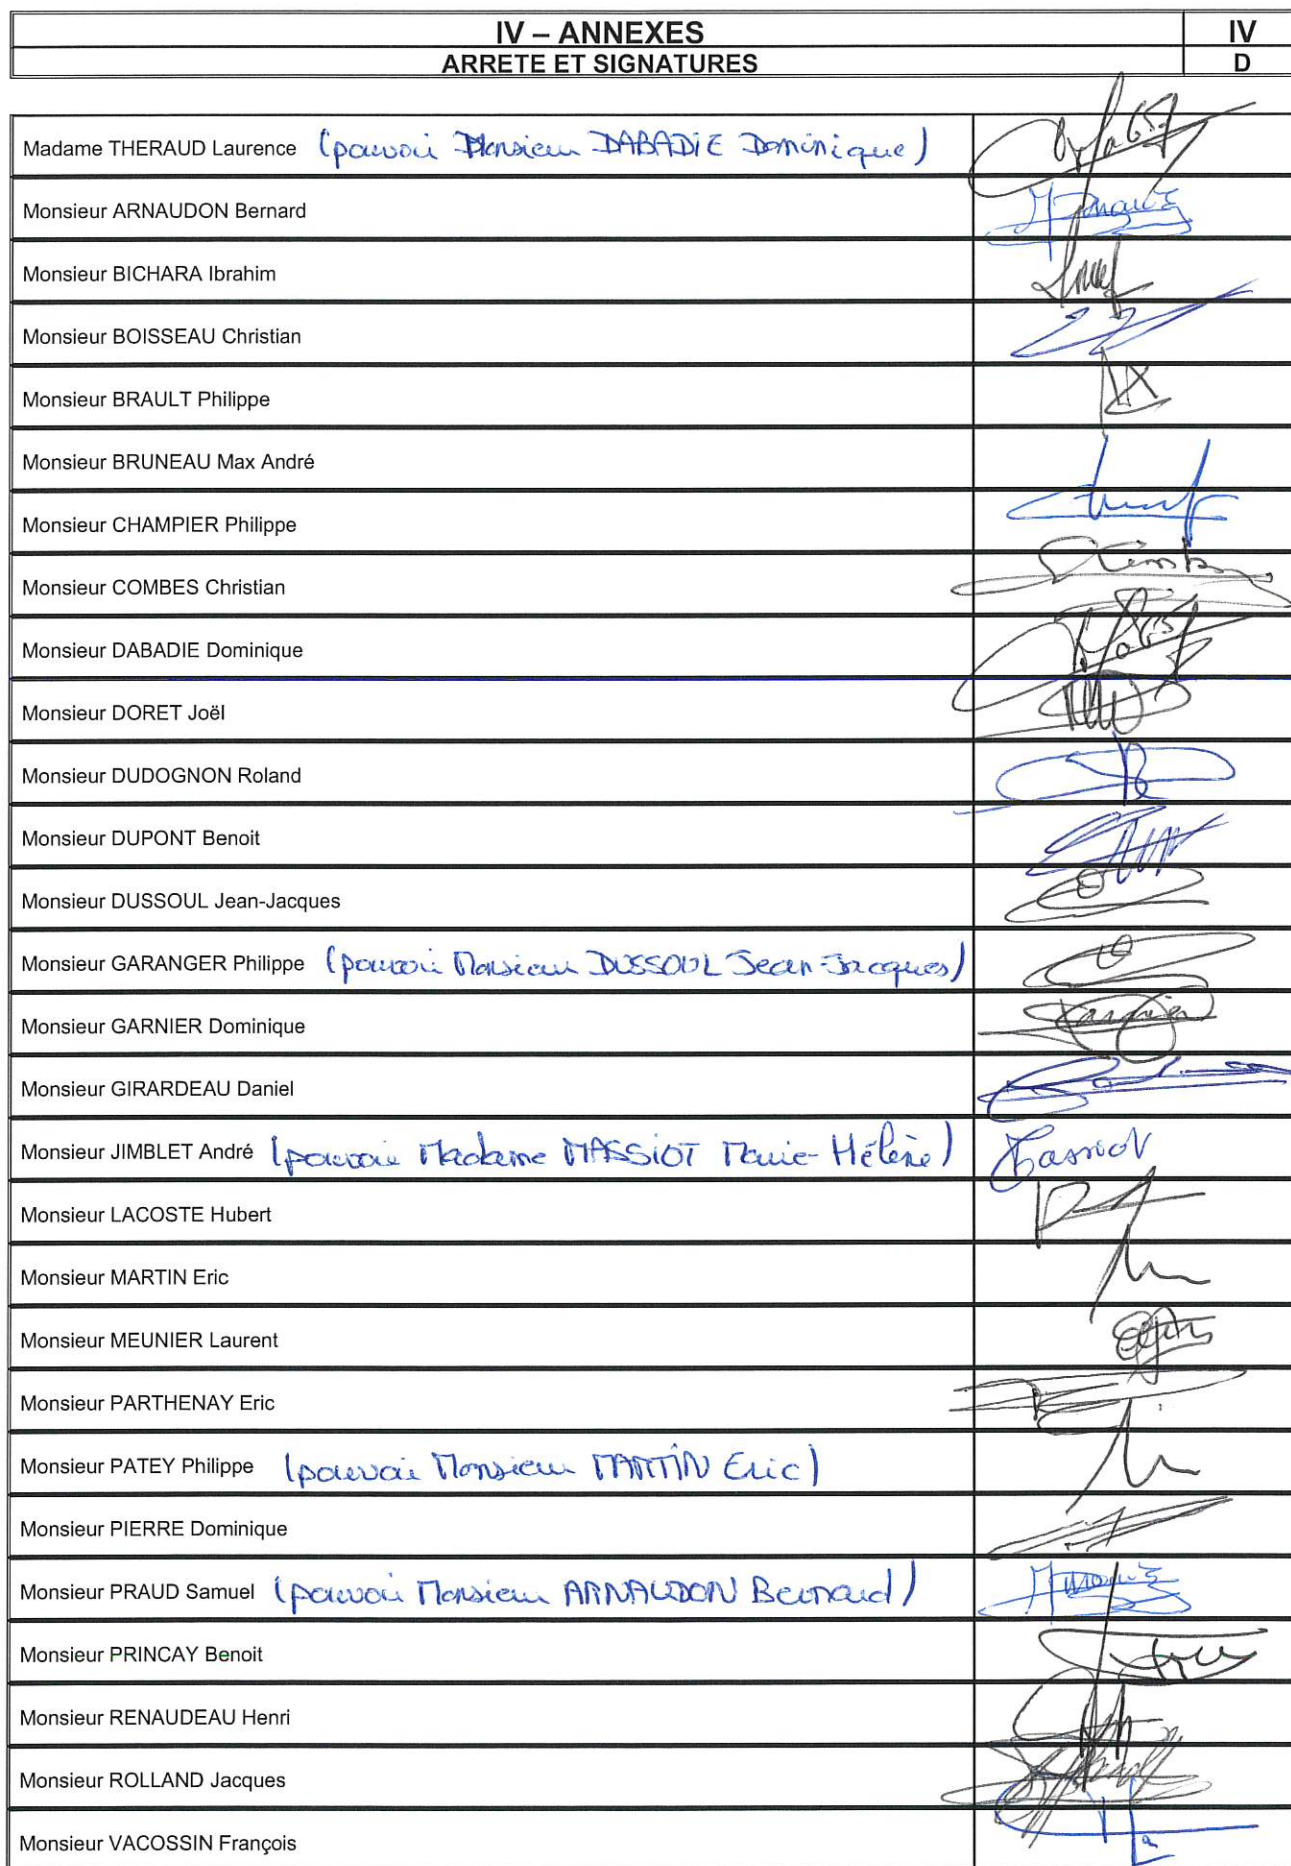 IV – ANNEXES IV
ARRETE ET SIGNATURES D
Madame THERAUD Laurence (pouvoir Monsieur DABADIE Dominique)
Monsieur ARNAUDON Bernard
Monsieur BICHARA Ibrahim
Monsieur BOISSEAU Christian
Monsieur BRAULT Philippe
Monsieur BRUNEAU Max André
Monsieur CHAMPIER Philippe
Monsieur COMBES Christian
Monsieur DABADIE Dominique
Monsieur DORET Joël
Monsieur DUDOGNON Roland
Monsieur DUPONT Benoit
Monsieur DUSSOUL Jean-Jacques
Monsieur GARANGER Philippe (pouvoir Monsieur DUSSOUL Jean-Jacques)
Monsieur GARNIER Dominique
Monsieur GIRARDEAU Daniel
Monsieur JIMBLET André (pouvoir Madame MASSIOT Marie-Hélène) Massiot
Monsieur LACOSTE Hubert
Monsieur MARTIN Eric
Monsieur MEUNIER Laurent
Monsieur PARTHENAY Eric
Monsieur PATEY Philippe (pouvoir Monsieur MARTIN Eric)
Monsieur PIERRE Dominique
Monsieur PRAUD Samuel (pouvoir Monsieur ARNAUDON Bernard)
Monsieur PRINCAY Benoit
Monsieur RENAUDEAU Henri
Monsieur ROLLAND Jacques
Monsieur VACOSSIN François